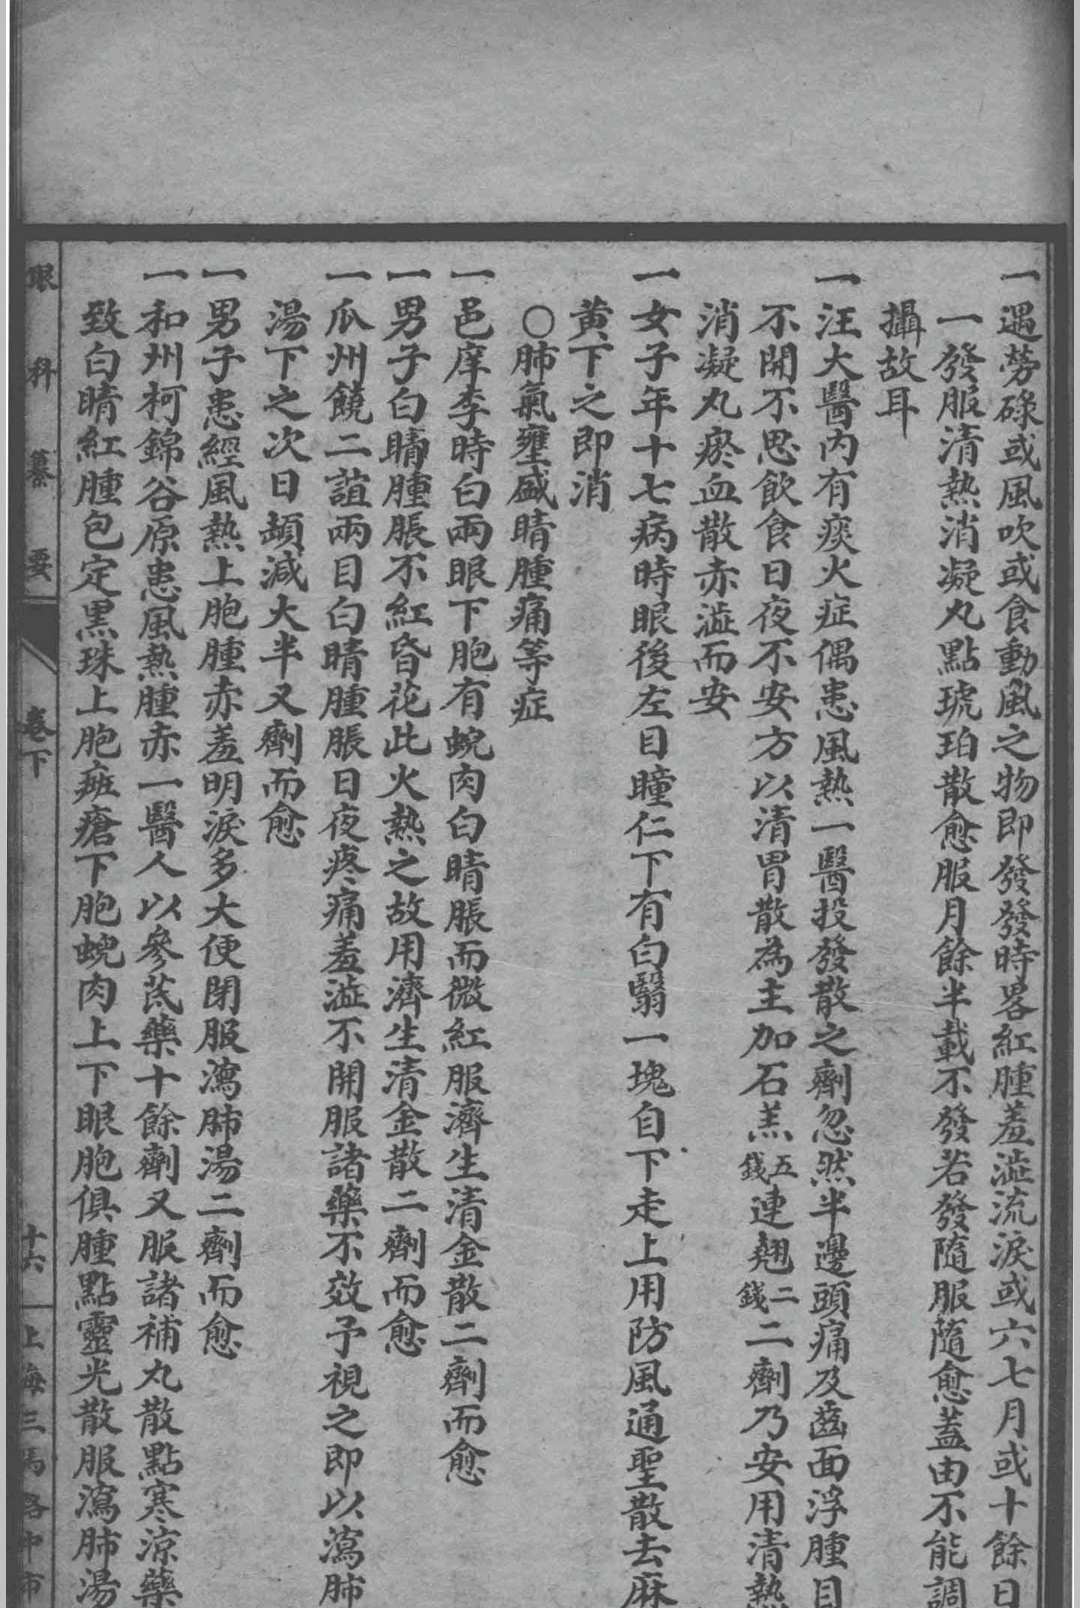 一遇勞碌或風吹或食動風之物即發發時畧紅腫羞澁流淚或六七月或十餘日
一發服清熱消凝丸點琥珀散愈服月餘半載不發若發隨服隨愈蓋由不能調
攝故耳
一汪大醫內有痰火症偶患風熱一醫投發散之劑忽然半邊頭痛及齒面浮腫目
不開不思飲食日夜不安方以清胃散為主加石羔五錢連翹二錢二劑乃安用清熱
消凝丸瘀血散赤澁而安
一女子年十七病時眼後左目瞳仁下有白翳一塊自下走上用防風通聖散去麻
黄下之即消
○肺氣壅盛睛腫痛等症
一邑庠李時白兩眼下胞有蜆肉白睛脹而微紅服濟生清金散二劑而愈
一男子白睛腫脹不紅昏花此火熱之故用濟生清金散二劑而愈
一瓜州饒二誼兩目白睛腫脹日夜疼痛羞澁不開服諸藥不效予視之即以瀉肺
湯下之次日頓減大半又劑而愈
一男子患經風熱上胞腫赤羞明淚多大便閉服瀉肺湯二劑而愈
一和州柯錦谷原患風熱腫赤一醫人以參芪藥十餘劑又服諸補丸散點寒涼藥
致白睛紅腫包定黑珠上胞癍瘡下胞蜆肉上下眼胞俱腫點靈光散服瀉肺湯
眼科纂要 卷下 十六 上海三馬路中市